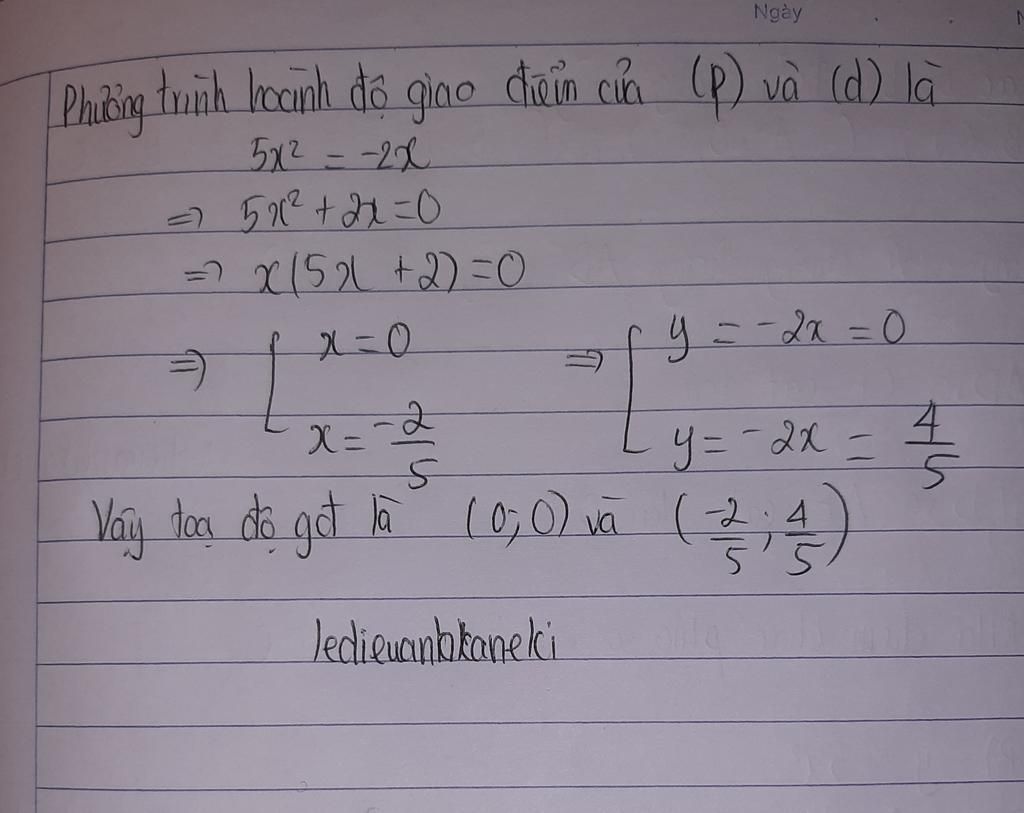 Ngày
Phương trình hoành độ giao điểm của (P) và (d) là
5x² = -2x
=> 5x² + 2x = 0
=> x(5x + 2) = 0
=> [ x = 0 => [ y = -2x = 0
x = -2/5 y = -2x = 4/5
Vậy toạ độ gđ là (0; 0) và (-2/5; 4/5)
ledieuanhkaneki